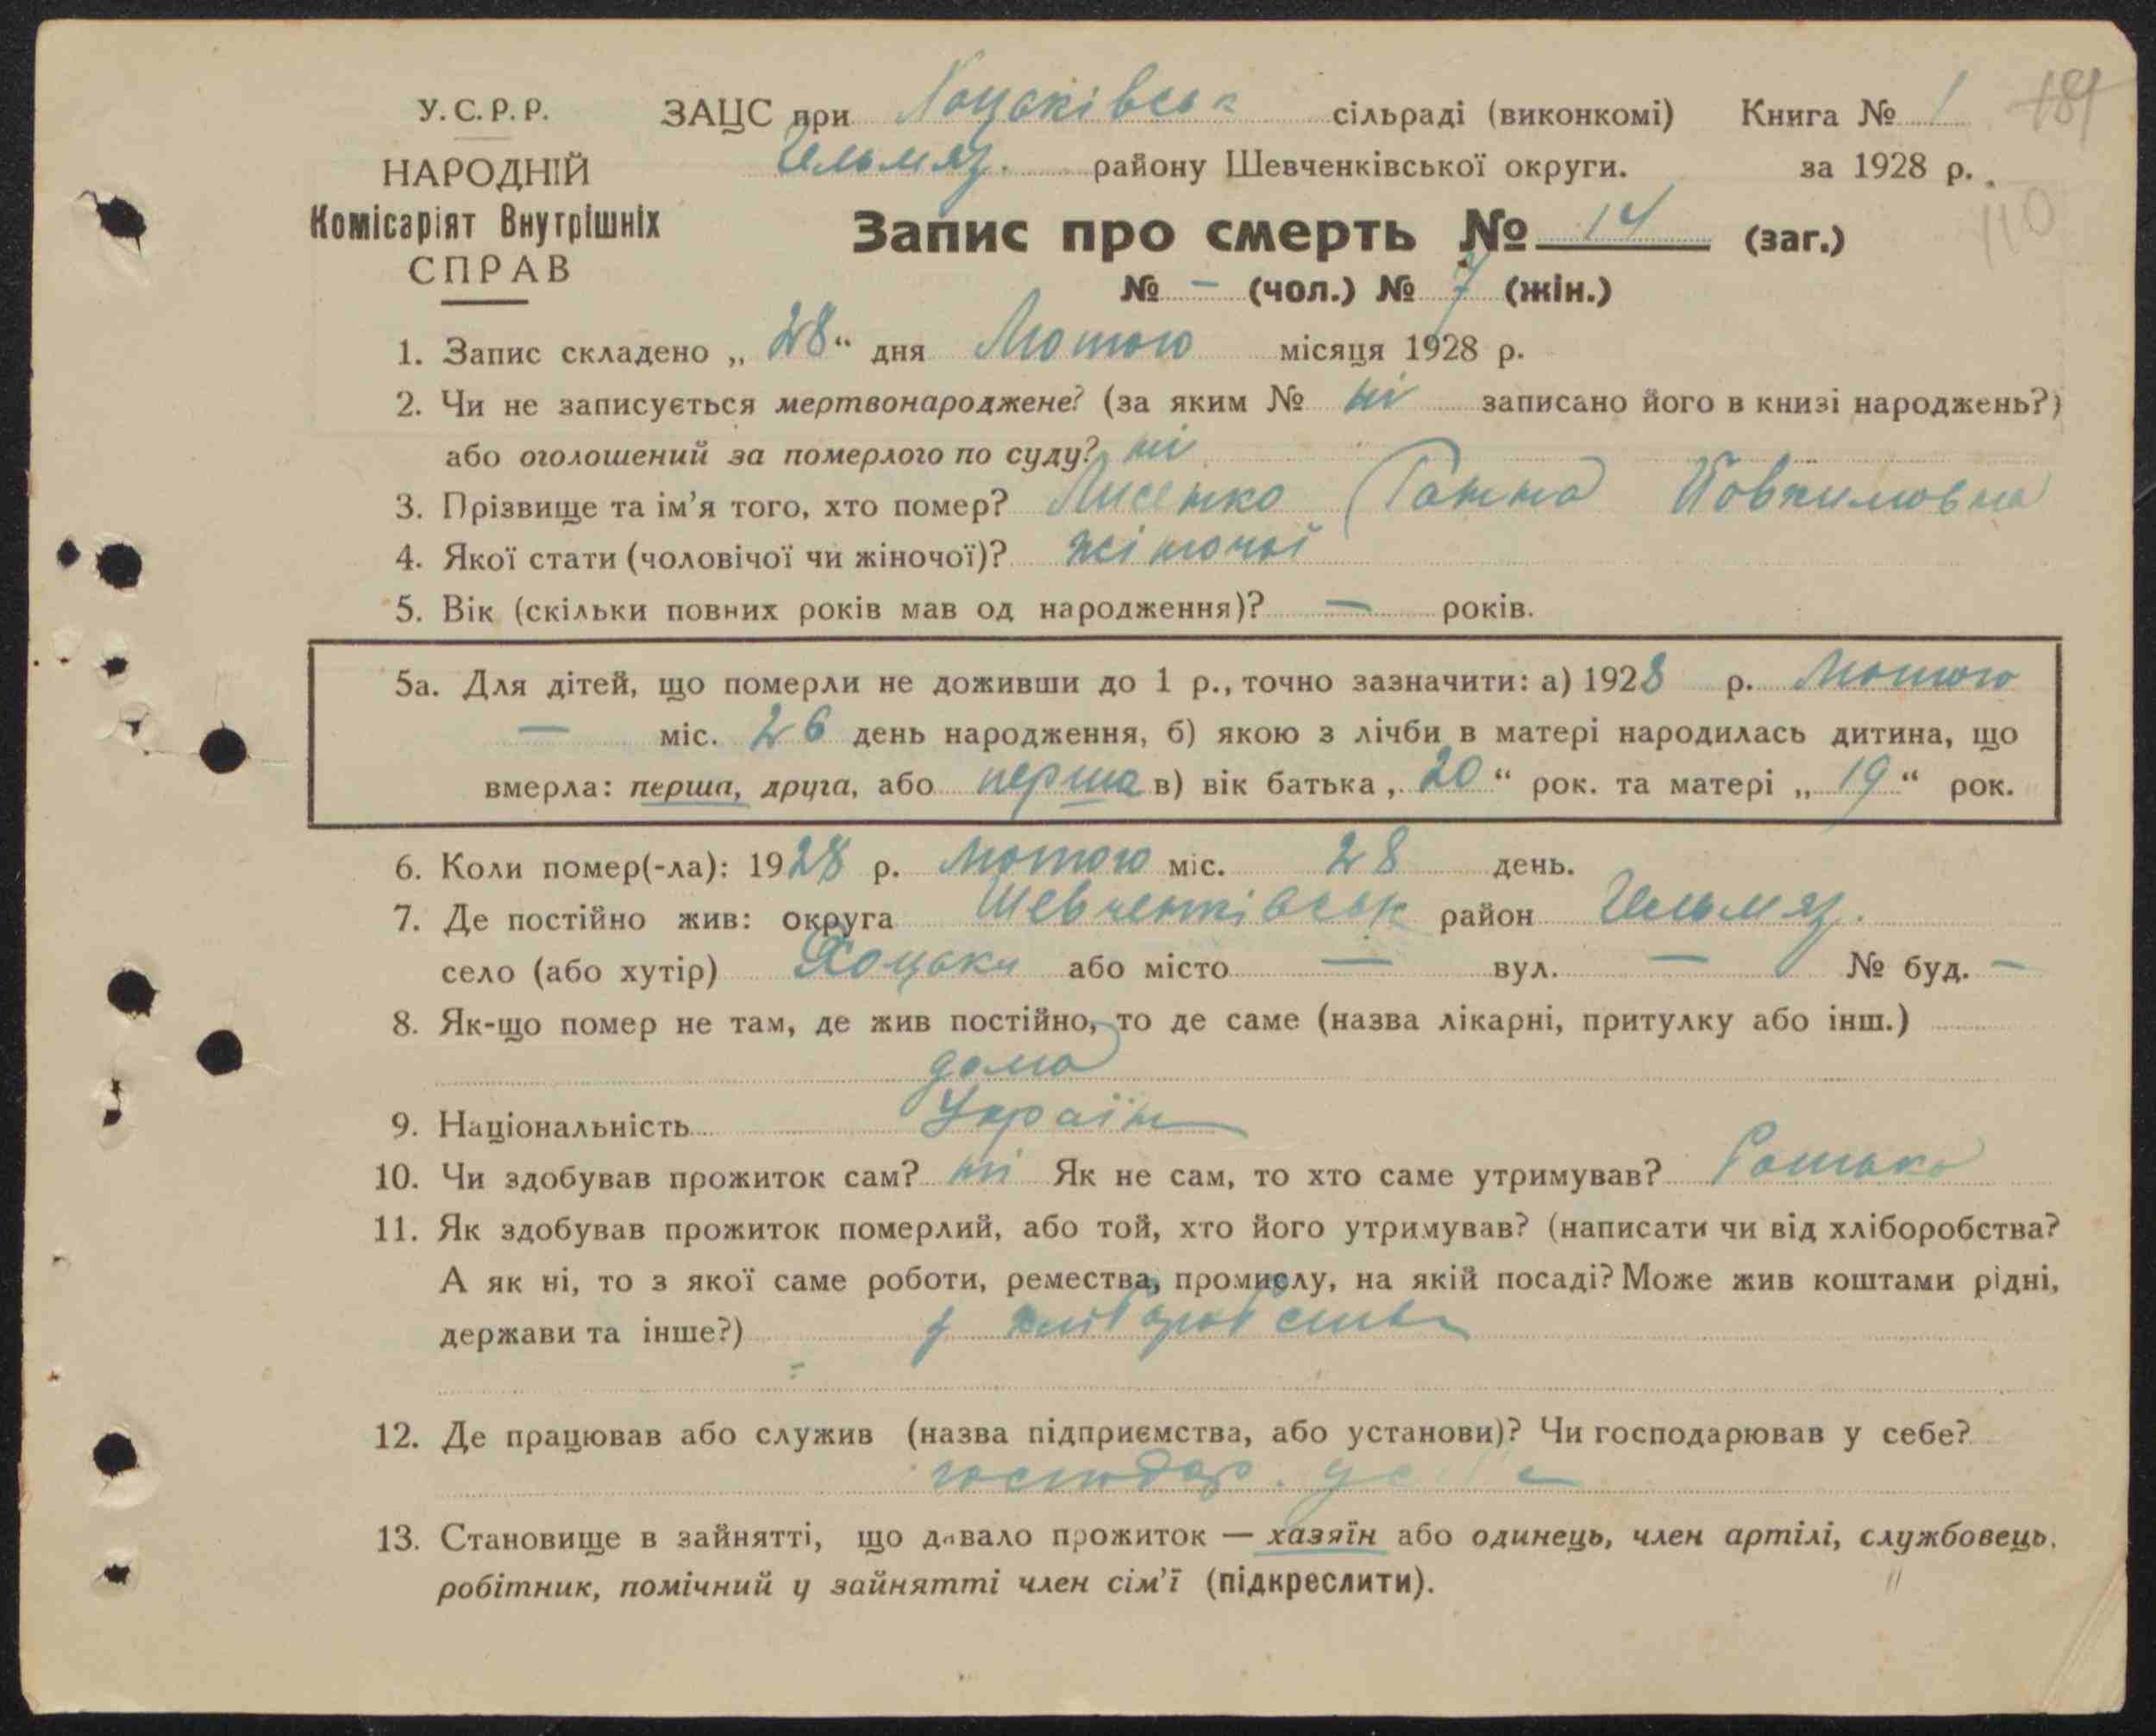 У.С.Р.Р. ЗАЦС при Хоцьківськ сільраді (виконкомі) Книга № 1 181
Гельмяз. району Шевченківської округи. за 1928 р.
110
НАРОДНІЙ
Комісаріят Внутрішніх
СПРАВ
Запис про смерть № 14 (заг.)
№ — (чол.) № 7 (жін.)
1. Запис складено „28“ дня Лютого місяця 1928 р.
2. Чи не записується мертвонароджене? (за яким № ні записано його в книзі народжень?)
або оголошений за померлого по суду? ні
3. Прізвище та ім’я того, хто помер? Лисенко Ганна
4. Якої стати (чоловічої чи жіночої)? жіночої
5. Вік (скільки повних років мав од народження)? — років.
5а. Для дітей, що померли не доживши до 1 р., точно зазначити: а) 1928 р. Лютого
— міс. 26 день народження, б) якою з лічби в матері народилась дитина, що
вмерла: перша, друга, або перша в) вік батька „20“ рок. та матері „19“ рок.
6. Коли помер(-ла): 1928 р. Лютого міс. 28 день.
7. Де постійно жив: округа Шевченківськ район Гельмяз.
село (або хутір) Хоцьки або місто — вул. — № буд. —
8. Як-що помер не там, де жив постійно, то де саме (назва лікарні, притулку або інш.)
дома
9. Національність Україн
10. Чи здобував прожиток сам? ні Як не сам, то хто саме утримував?
11. Як здобував прожиток померлий, або той, хто його утримував? (написати чи від хліборобства?
А як ні, то з якої саме роботи, ремества, промислу, на якій посаді? Може жив коштами рідні,
держави та інше?) з хліборобства
12. Де працював або служив (назва підприємства, або установи)? Чи господарював у себе?
господар. у себе
13. Становище в зайнятті, що давало прожиток — хазяїн або одинець, член артілі, службовець,
робітник, помічний у зайнятті член сім’ї (підкреслити).